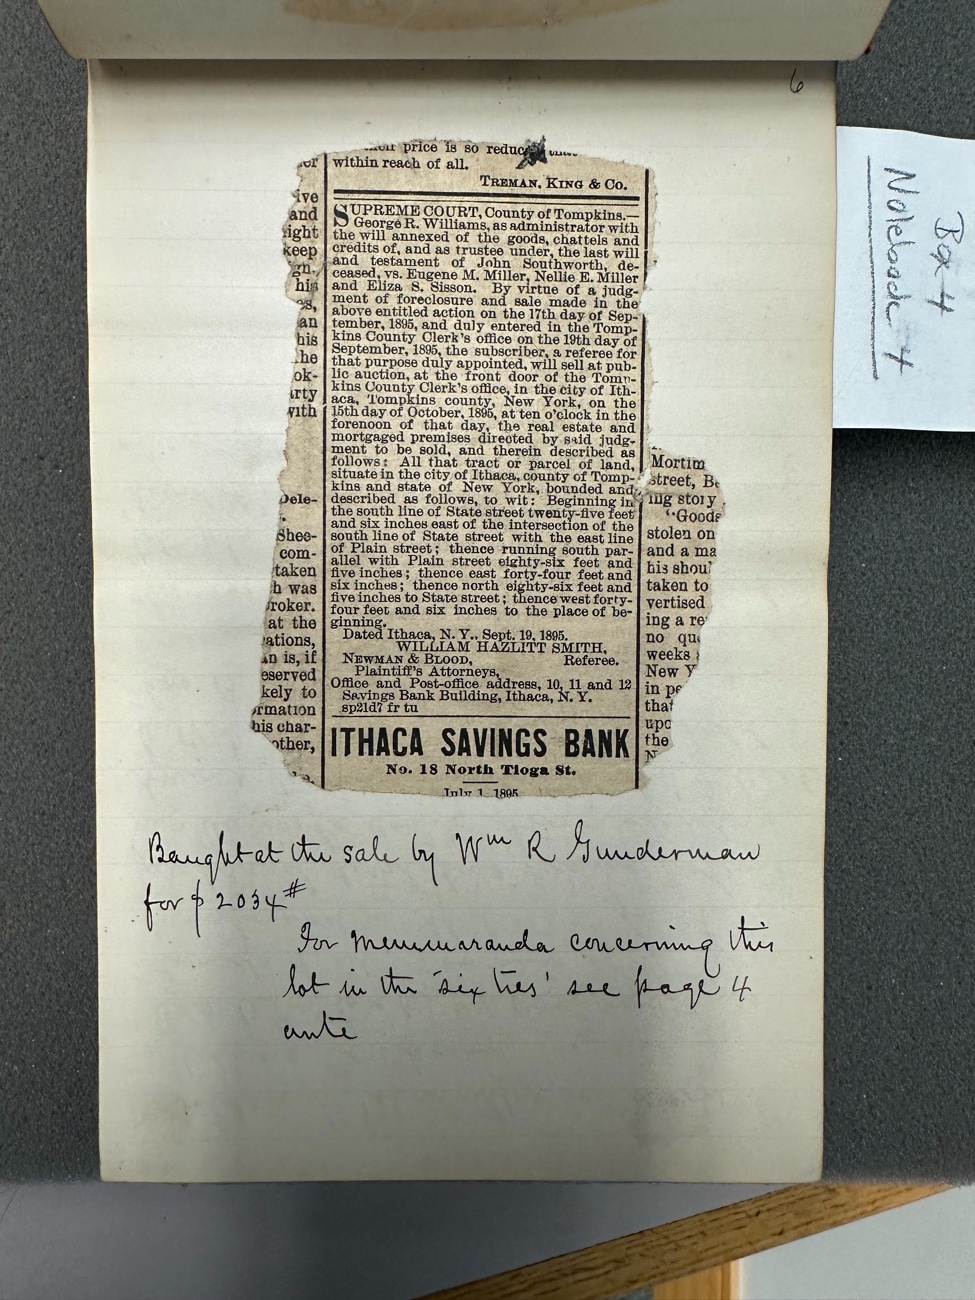 6
Box 4
Notebook 4
price is so reduc
within reach of all.
TREMAN, KING & CO.
SUPREME COURT, County of Tompkins.—
George R. Williams, as administrator with
the will annexed of the goods, chattels and
credits of, and as trustee under, the last will
and testament of John Southworth, de-
ceased, vs. Eugene M. Miller, Nellie E. Miller
and Eliza S. Sisson. By virtue of a judg-
ment of foreclosure and sale made in the
above entitled action on the 17th day of Sep-
tember, 1895, and duly entered in the Tomp-
kins County Clerk's office on the 19th day of
September, 1895, the subscriber, a referee for
that purpose duly appointed, will sell at pub-
lic auction, at the front door of the Tomp-
kins County Clerk's office, in the city of Ith-
aca, Tompkins county, New York, on the
15th day of October, 1895, at ten o'clock in the
forenoon of that day, the real estate and
mortgaged premises directed by said judg-
ment to be sold, and therein described as
follows: All that tract or parcel of land,
situate in the city of Ithaca, county of Tomp-
kins and state of New York, bounded and
described as follows, to wit: Beginning in
the south line of State street twenty-five feet
and six inches east of the intersection of the
south line of State street with the east line
of Plain street; thence running south par-
allel with Plain street eighty-six feet and
five inches; thence east forty-four feet and
six inches; thence north eighty-six feet and
five inches to State street; thence west forty-
four feet and six inches to the place of be-
ginning.
Dated Ithaca, N. Y., Sept. 19, 1895.
WILLIAM HAZLITT SMITH,
NEWMAN & BLOOD, Referee.
Plaintiff's Attorneys,
Office and Post-office address, 10, 11 and 12
Savings Bank Building, Ithaca, N. Y.
sp21d7 fr tu
ITHACA SAVINGS BANK
No. 18 North Tioga St.
July 1 1895
ive
and
ight
keep
gn.
his
es,
an
his
he
ok-
rty
with
Dele-
Shee-
com-
taken
h was
roker.
at the
ations,
an is, if
eserved
kely to
rmation
his char-
other,
Mortim
street, Be
ing story
"Goods
stolen on
and a ma
his shoul
taken to
vertised
ing a re
no que
weeks
New Y
in pe
that
upo
the
N
Baught at the sale by Wm R Gunderman
for $ 2034#
For Memmaranda concerning this
lot in the 'sixties' see page 4
ante